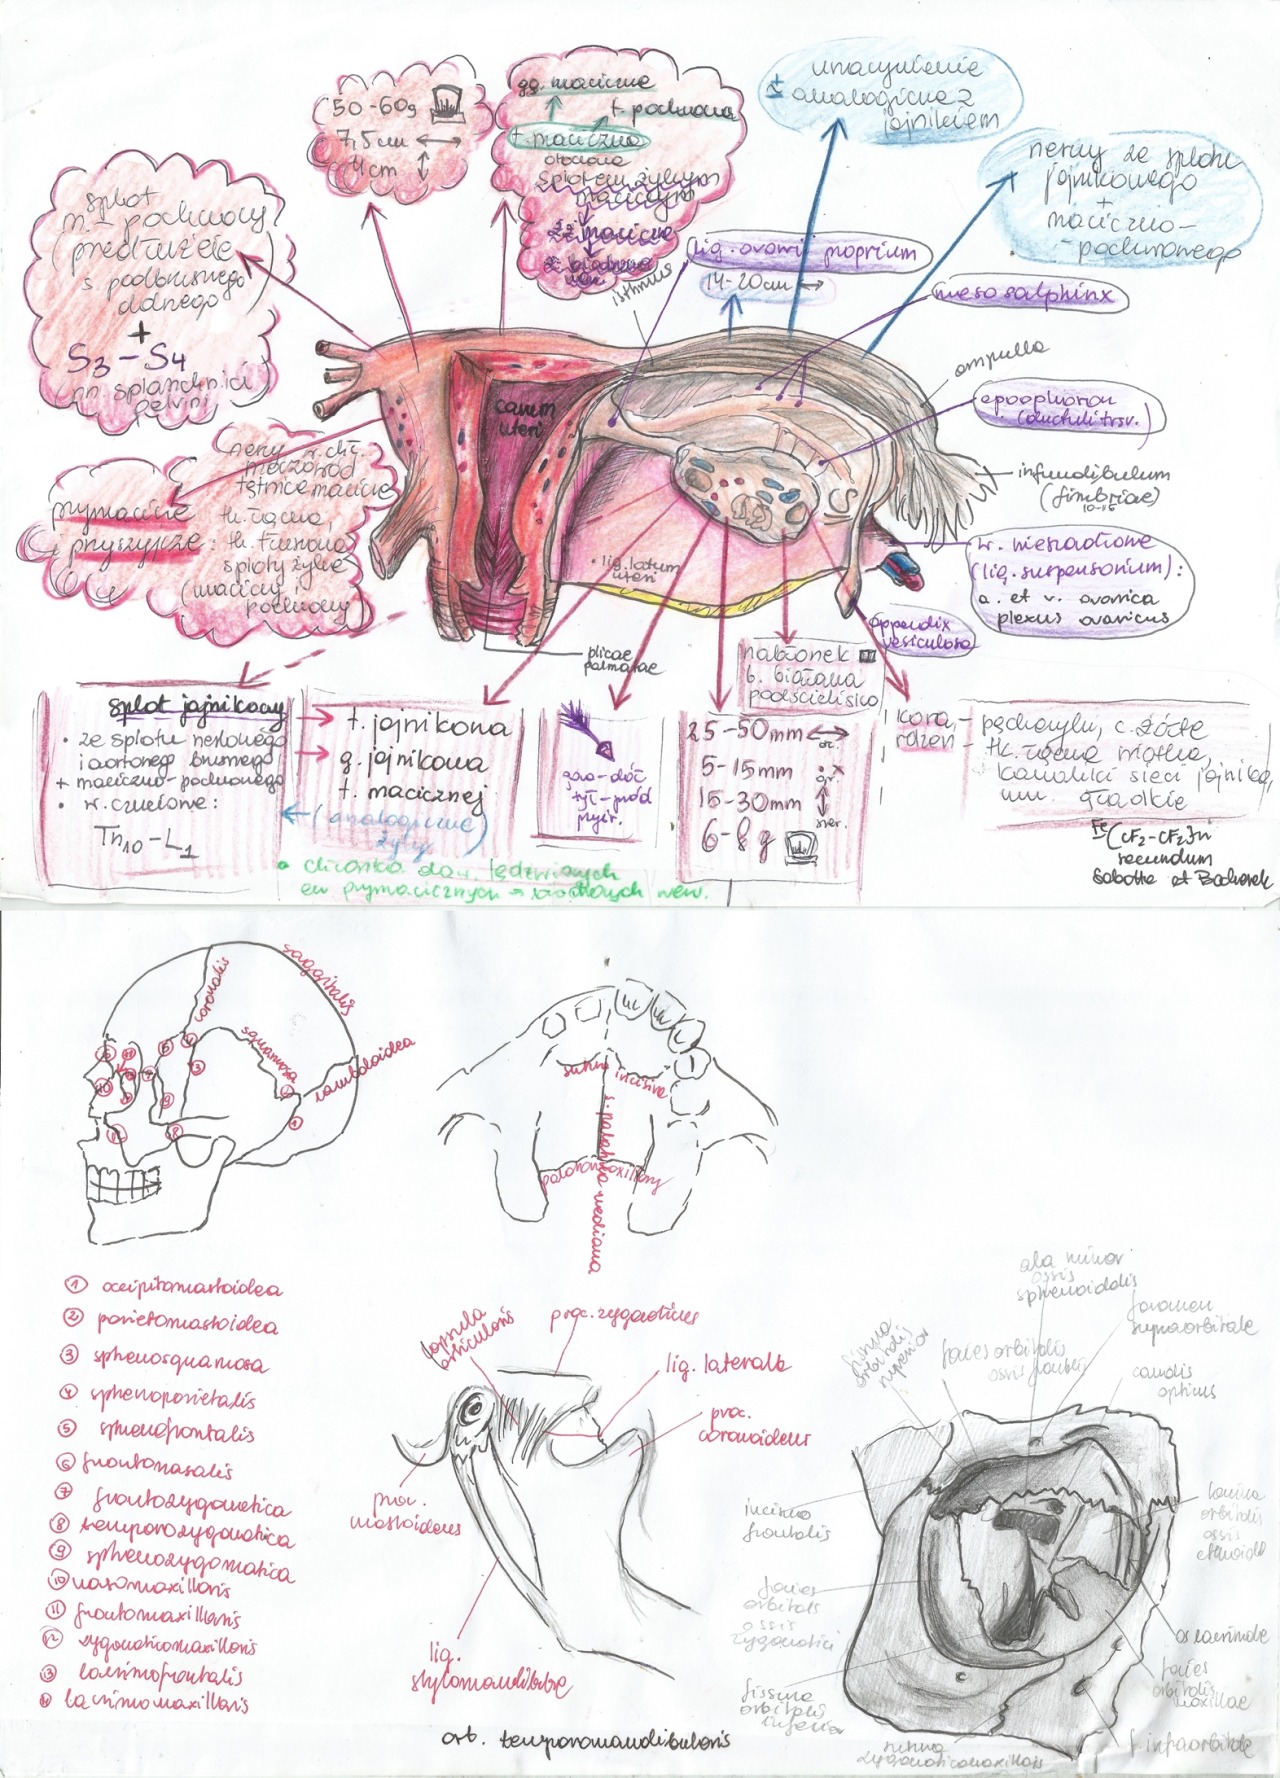 50-60g
7,5cm
4cm
gg. maciczne
t. pochwowa
t. maciczna
otoczona
splotem żylnym
macicznym
żż. maciczne
unaczynienie
± analogiczne z
jajnikiem
nerwy ze splotu
jajnikowego
+
maciczno-
-pochwowego
splot
m.-pochwowy
(przedłużenie
s. podbrzusznego
dolnego)
+
S3-S4
nn. splanchnici
pelvini
isthmus
lig. ovarii proprium
14-20cm
mesosalphinx
ampulla
epoophoron
(ductuli trsv.)
infundibulum
(fimbriae)
10-15
w. wieszadłowe
(lig. suspensorium):
a. et v. ovarica
plexus ovaricus
appendix
vesiculosa
cavum
uteri
lig. latum
uteri
plicae
palmatae
przymacicze
i przyszyjcze:
nerwy
tętnice macicy
tk. łączna,
tk. tłuszczowa
sploty żylne
(macicy i
pochwowy)
splot jajnikowy
• ze splotu nerkowego
i aortowego brzusznego
+ maciczno-pochwowego
• w. czuciowe:
Th10-L1
t. jajnikowa
g. jajnikowa
t. macicznej
(analogiczne
żyły)
• chłonka do w. lędźwiowych
tył-przód
nabłonek
b. biaława
podścielisko
25-50mm
5-15mm
15-30mm
6-8g
kora - pęcherzyki, c. żółte
rdzeń - tk. łączna wiotka,
kanaliki sieci jajnika,
mm. gładkie
Fe(CF2-CF2)n
secundum
Sobotta et Bochenek
coronalis
saggitalis
squamosa
lambdoidea
sutura incisiva
s. palatina mediana
palatomaxillary
1 occipitomastoidea
2 parietomastoidea
3 sphenosquamosa
4 sphenoparietalis
5 sphenofrontalis
6 frontonasalis
7 frontozygomatica
8 temporozygomatica
9 sphenozygomatica
10 nasomaxillaris
11 frontomaxillaris
12 zygomaticomaxillaris
13 lacrimofrontalis
14 lacrimomaxillaris
capsula
articularis
proc. zygomaticus
lig. laterale
proc.
coronoideus
proc.
mastoideus
lig.
stylomandibulare
art. temporomandibularis
ala minor
ossis
sphenoidalis
foramen
supraorbitale
fissura
orbitalis
superior
facies orbitalis
ossis frontalis
canalis
opticus
incisura
frontalis
lamina
orbitalis
ossis
ethmoid
facies
orbitalis
ossis
zygomatici
os lacrimale
facies
orbitalis
maxillae
fissura
orbitalis
inferior
sutura
zygomaticomaxillaris
f. infraorbitale